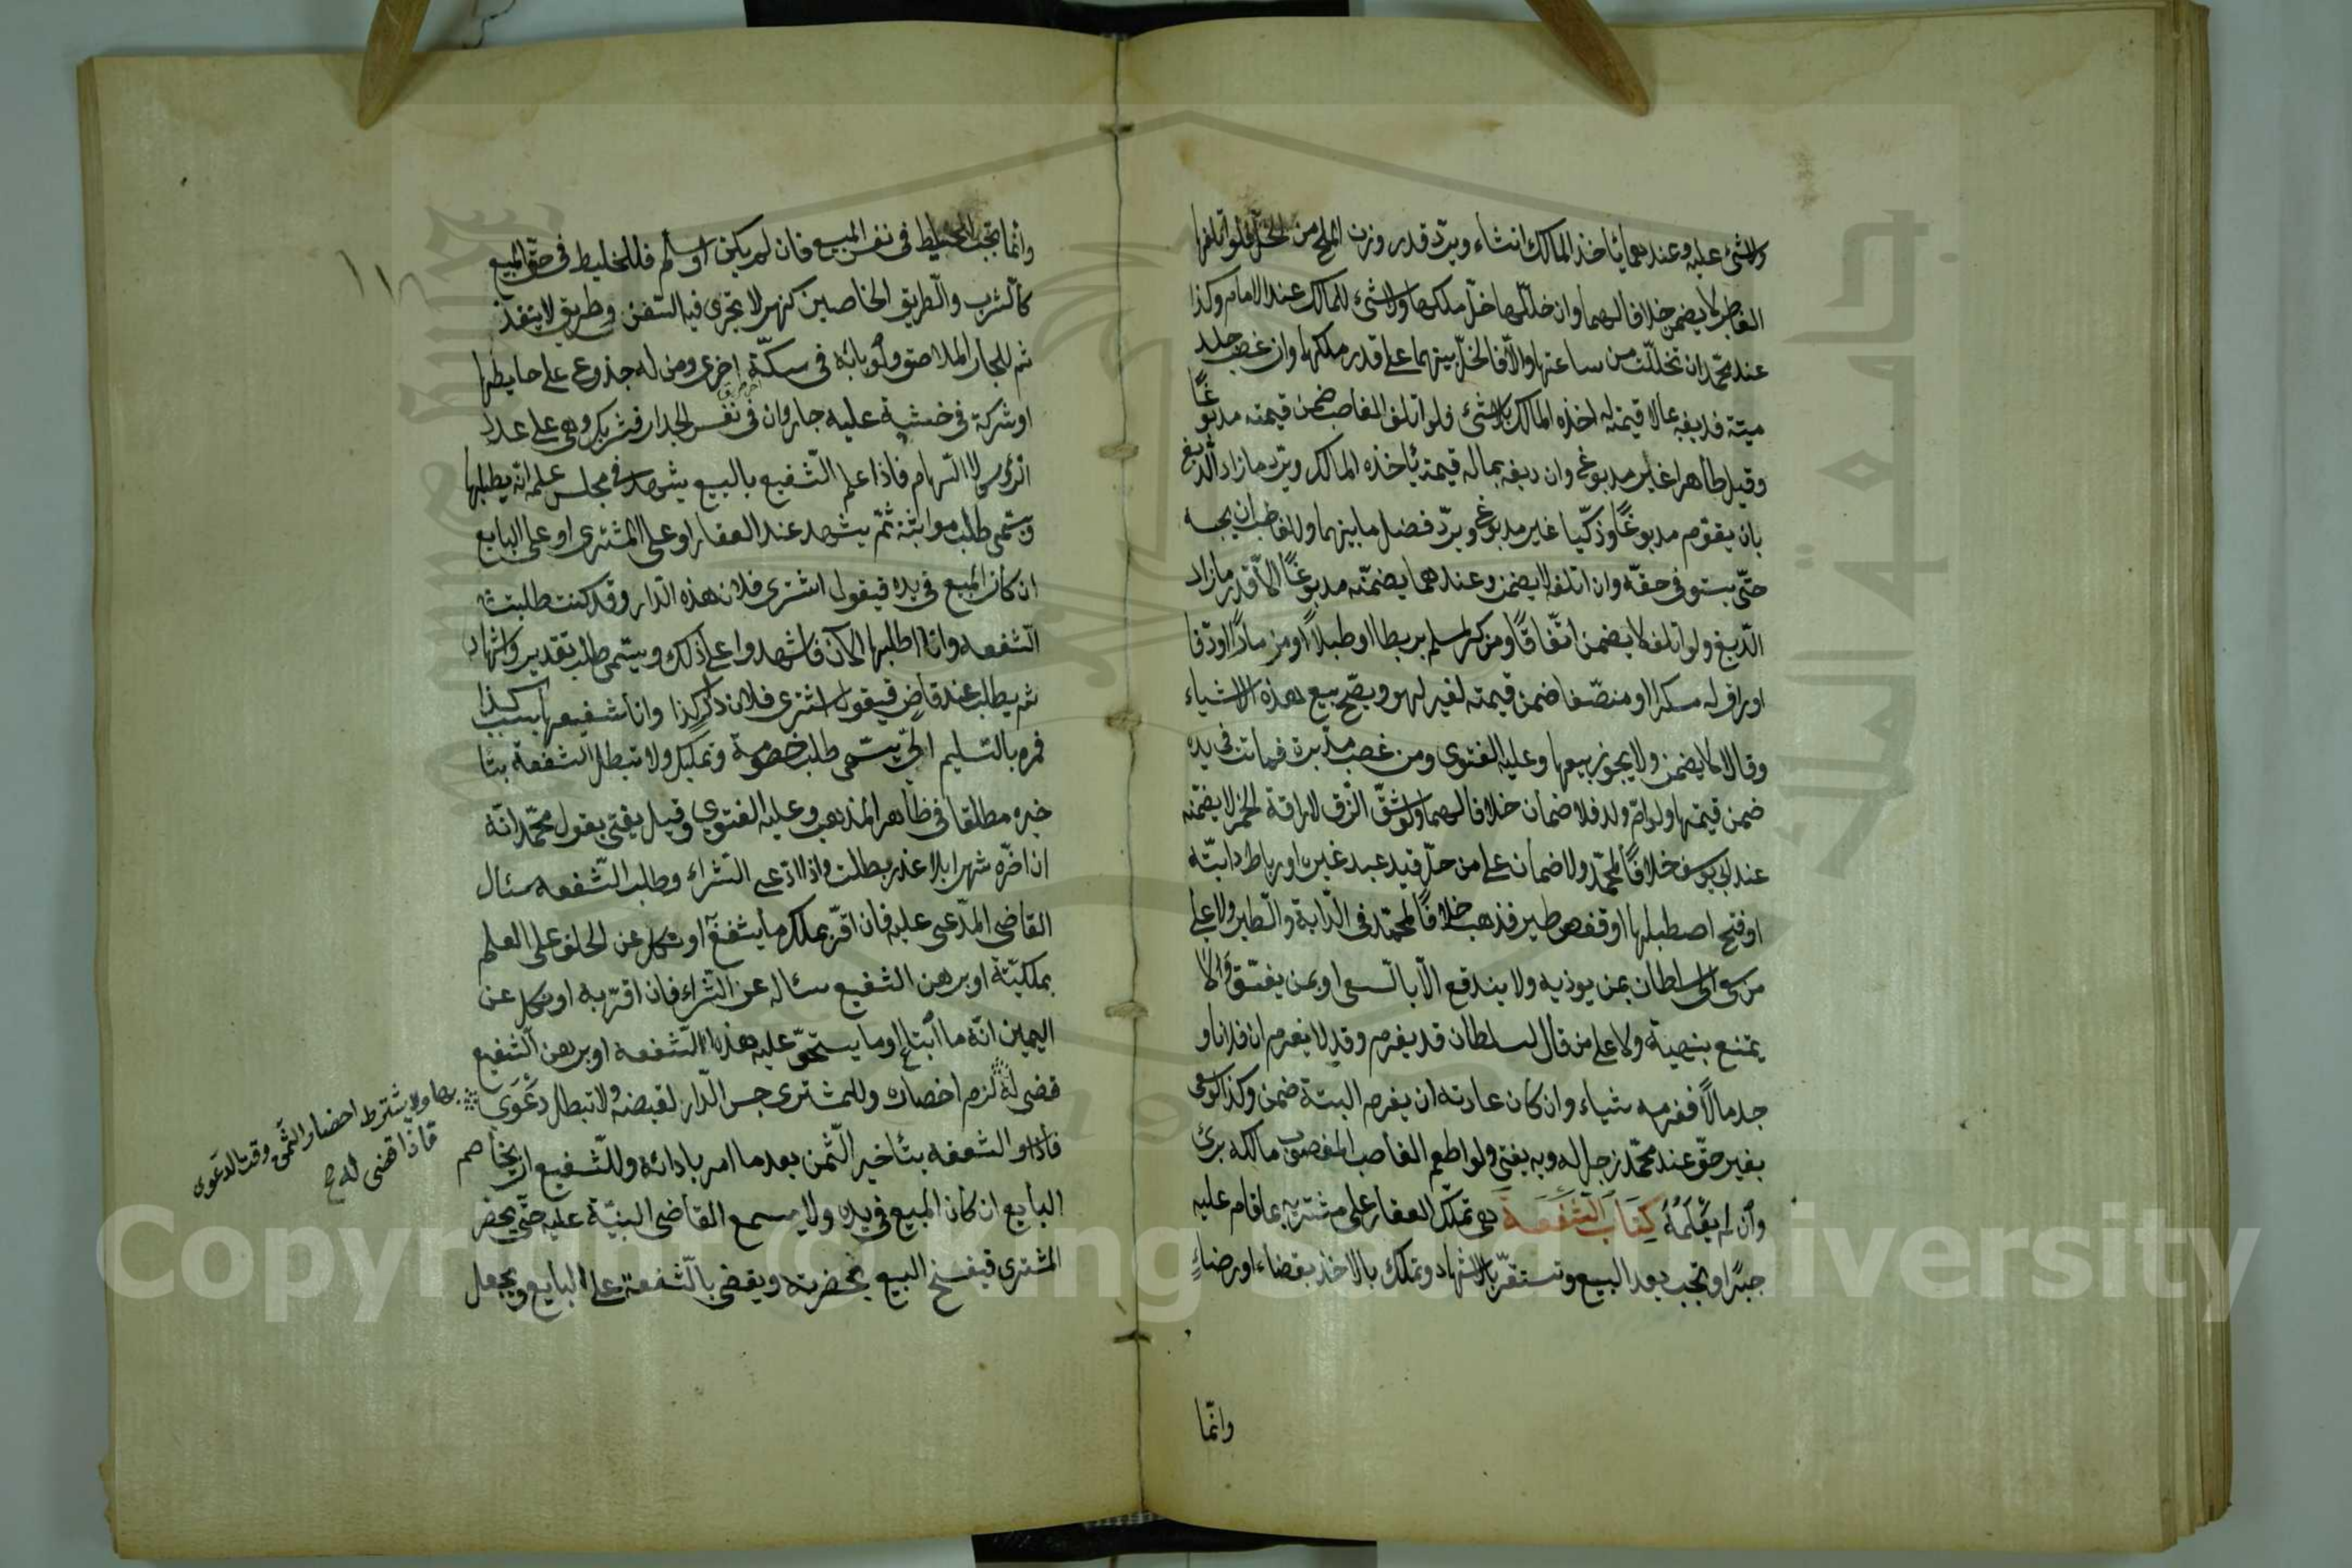 ولا شئ عليه وعندهما يأخذ المالك ان شاء ويرد قدر وزن الملح من الخل فلو اتلفها
الغاصب لا يضمن خلافا لهما وان خللها خل ملكها ولا شئ للمالك عند الامام وكذا
عند محمد ان تخللت من ساعتها والا فالخل بينهما على قدر ملكهما وان غصب جلد
ميتة فدبغه بما لا قيمة له اخذه المالك بلا شئ فلو اتلفه الغاصب ضمن قيمته مدبوغا
وقيل طاهرا غير مدبوغ وان دبغه بما له قيمة يأخذه المالك ويرد ما زاد الدبغ
بان يقوم مدبوغا وذكيا غير مدبوغ ويرد فضل ما بينهما وللغاصب ان يحبسه
حتى يستوفى حقه وان اتلفه لا يضمن وعندهما يضمنه مدبوغا الا قدر ما زاد
الدبغ ولو اتلفه لا يضمن اتفاقا ومن كسر لمسلم بربطا او طبلا او مزمارا او دفا
او اراق له سكرا او منصفا ضمن قيمته لغير لهو ويصح بيع هذه الاشياء
وقالا لا يضمن ولا يجوز بيعها وعليه الفتوى ومن غصب مدبرة فماتت فى يده
ضمن قيمتها ولو ام ولد فلا ضمان خلافا لهما ولو شق الزق لاراقة الخمر لا يضمنه
عند ابى يوسف خلافا لمحمد ولا ضمان على من حل قيد عبد غيره او رباط دابته
او فتح اصطبلها او قفص طير فذهب خلافا لمحمد فى الدابة والطير ولا على
من سعى الى السلطان بمن يوذيه ولا يندفع الا بالسعى او بمن يفسق ولا
يمتنع بنهيه ولا على من قال لسلطان قد يغرم وقد لا يغرم ان فلانا و
جد مالا فغرمه شياء وان كان عادته ان يغرم البتة ضمن وكذا لو سعى
بغير حق عند محمد زجرا له وبه يفتى ولو اطعم الغاصب المغصوب مالكه برئ
وان لم يعلمه كتاب الشفعة هى تملك العقار على مشتريه بما قام عليه
جبرا وتجب بعد البيع وتستقر بالاشهاد وتملك بالاخذ بقضاء او رضاء
وانما
وانما تجب للخليط فى نفس المبيع فان لم يكن او سلم فللخليط فى حق المبيع
كالشرب والطريق الخاصين كنهر لا تجرى فيه السفن وطريق لا ينفذ
ثم للجار الملاصق ولو بابه فى سكة اخرى ومن له جذوع على حايطها
او شركة فى خشبة عليه جار وان فى نفس الجدار فشريك وهى على عدد
الرؤس لا السهام فاذا علم الشفيع بالبيع يشهد فى مجلس علمه انه يطلبها
ويسمى طلب مواثبة ثم يشهد عند العقار او على المشترى او على البايع
ان كان المبيع فى يده فيقول اشترى فلان هذه الدار وقد كنت طلبت
الشفعه وانا اطلبها الآن فاشهدوا على ذلك ويسمى طلب تقدير واشهاد
ثم يطلب عند قاض فيقول اشترى فلان دار كذا وانا شفيعها بسبب كذا
فمره بالتسليم الى ويسمى طلب خصومة وتمليك ولا تبطل الشفعة بتا
خيره مطلقا فى ظاهر المذهب وعليه الفتوى وقيل يفتى بقول محمد انه
ان اخره شهرا بلا عذر بطلت واذا ادعى الشراء وطلب الشفعه سئال
القاضى المدعى عليه فان اقر بملك ما يشفع او نكل عن الحلف على العلم
بملكيته او برهن الشفيع سئاله عن الشراء فان اقر به او نكل عن
اليمين انه ما ابتاع او ما يستحق عليه هذه الشفعة او برهن الشفيع
قضى له لزم احضاره وللمشترى حبس الدار لقبضه ولا تبطل دعوى
بها ولا يشترط احضار الثمن وقت الدعوى
فاذا قضى له صح
الشفعه بتأخير الثمن بعد ما امر بادائه وللشفيع ان يخاصم
البايع ان كان المبيع فى يده ولا يسمع القاضى البينة عليه حتى يحضر
المشترى فيفسخ البيع بحضرته ويقضى بالشفعة على البايع ويجعل
Copyright © King Saud University